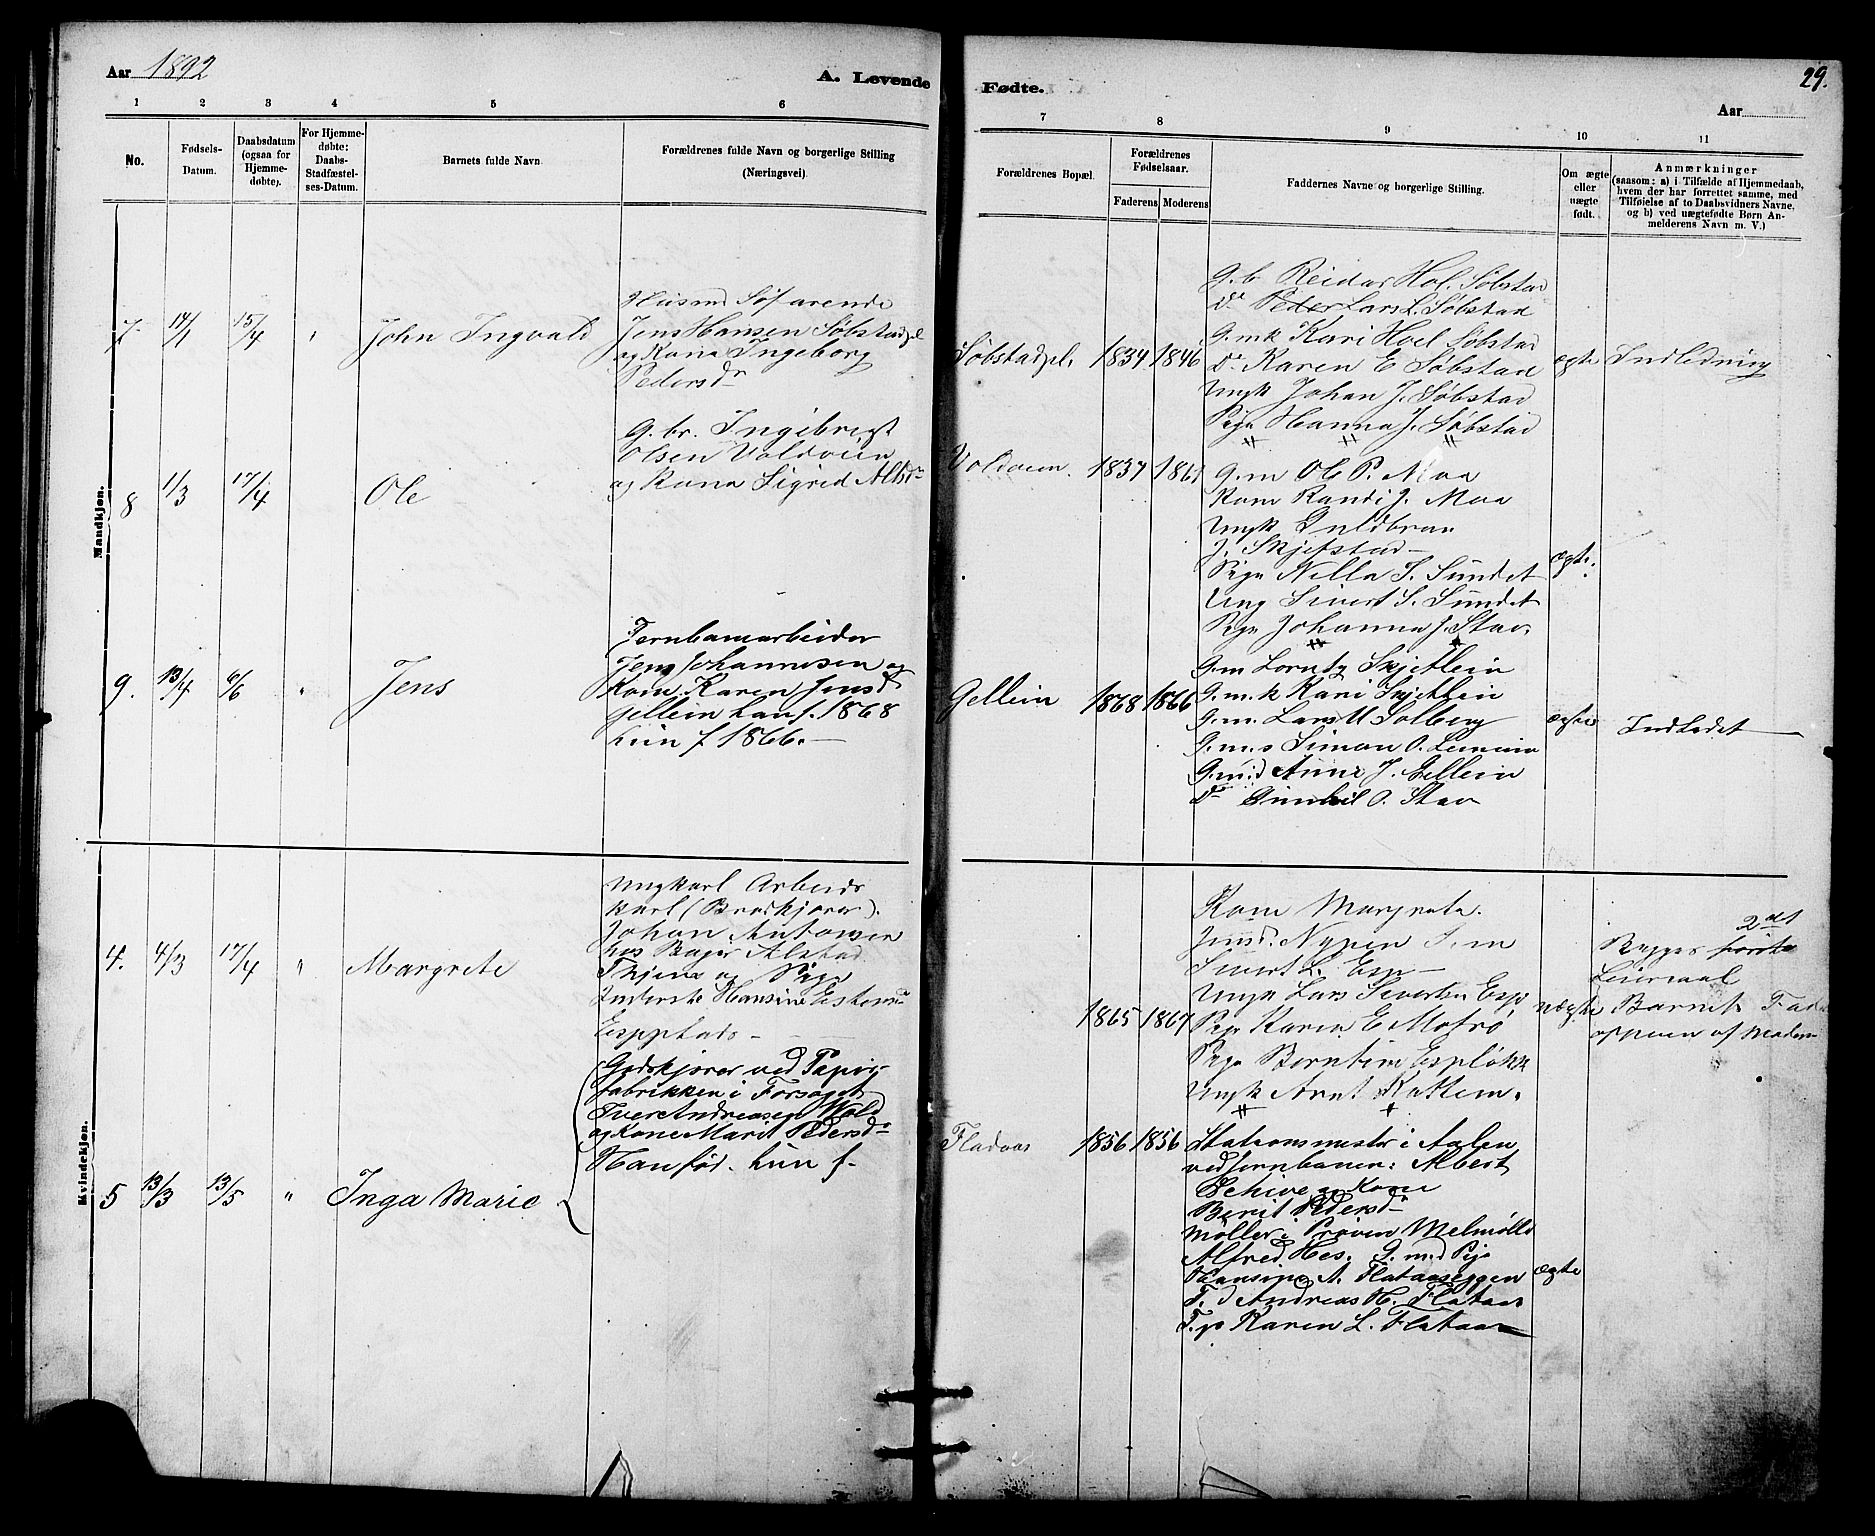 Aar 1892
A. Levende
Fødte.
29.
Aar
1 2 3 4 5 6
7 8 9 10 11
No.
Fødsels-
Datum.
Daabsdatum
(ogsaa for
Hjemme-
døbte).
For Hjemme-
døbte:
Daabs-
Stadfæstel-
ses-Datum.
Barnets fulde Navn
Forældrenes fulde Navn og borgerlige Stilling
(Næringsvei)
Forældrenes Bopæl.
Forældrenes
Fødselsaar.
Faderens Moderens
Faddernes Navne og borgerlige Stilling.
Om ægte
eller
uægte
født.
Anmærkninger
(saasom: a) i Tilfælde af Hjemmedaab,
hvem der har forrettet samme, med
Tilføielse af to Daabsvidners Navne,
og b) ved uægtefødte Børn An-
melderens Navn m. V.)
Mandkjøn.
7 14/1 15/4 " John Ingvald
Jens Hansen Søbstadpl
og Kona Ingeborg
Pedersdr
Søbstadpl. 1834 1846
G.b Reidar Hol. Søbstad
do Peder Lars L. Søbstad
G.mk Kari Hoel Søbstad
do Karen E Søbstad
Ungk Johan J. Søbstad
Pige Hanna J. Søbstad
ægte Indledning
8 1/3 17/4 Ole
G.br. Ingebrigt
Olsen Voldveien
og Kona Sigrid
Voldveien. 1837
G.m Ole P. Moa
Kone Randi J. Moa
Ungk Guldbran
J. Skjefstad
Pige Nella S. Sundet
Ung Sivert S. Sundet
Pige Johanna J. Stav.
ægte.
9. 13/4 6/6 " Jens
Jernbanearbeider
Jens Johannesen og
Kone Karen Jensd
Gellein han f. 1868
hun f 1866.
Gellein 1868 1866
G.m Lorntz Skjetlein
G.m.k Kari Skjetlein
G.m. Lars M Solberg
G.m.s Simon O.
G.m.d Anne J. Gellein
do Gunhil O. Stav
ægte Indledet
Kvindekjøn.
4. 4/3 17/4 " Margrete
Ungkarl Arbeids
karl
Johan Antonsen
hos Alstad
Tkjene og Pige
Hansine
1865 1867
Kone Margrete
Jensd. Nypen G.m
Sivert L. Esp
Ungk Lars Sivertsen Esp
Pige Karen E Mofrø
Pige Berntine Espløkk
Ungk Arnt Kattem.
uægte
2det
Begges første
Leiermaal
Barnets Fader
opgiven af Moderen
5 13/3 13/5 " Inga Marie
Godskjører ved Papir-
fabrikken i Forsøget
Iver Andreasen Wold
og Kone Marit Pedersdr
Han fød. hun f.
Fladaas 1856 1856
Stationsmester i Aalen
ved Jernbanen: Albert
Schive og Kone
Berit Pedersdr
Møller i Prøven Melmølle
Alfred Hes. G.md Pige
Hansine A. Flataaseggen
F. d Andreas H. Flataas
F.p Karen L. Flataas
ægte